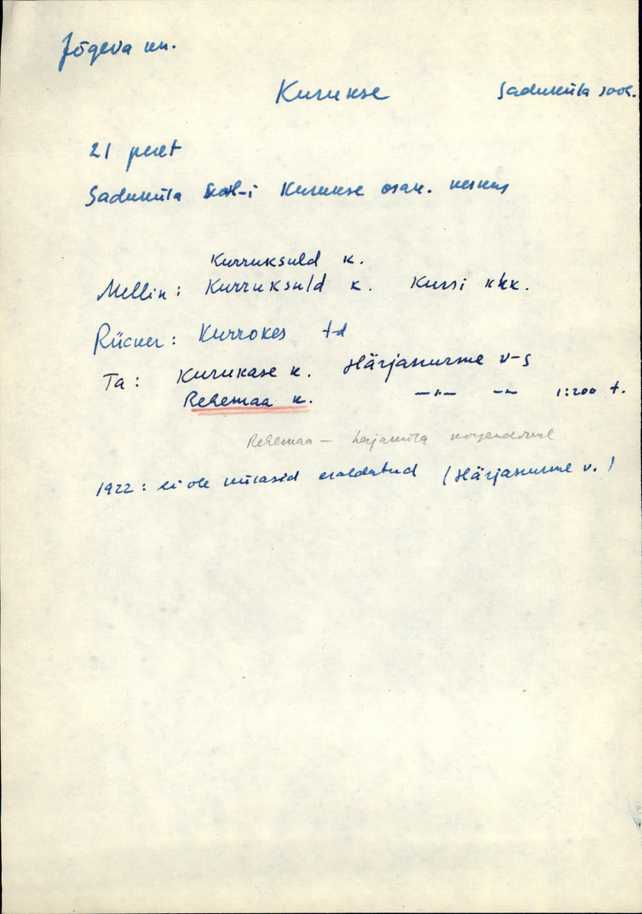 Jõgeva khn.
Kurukse Saduküla sook.
21 peret
Saduküla Kurukse osak. keskus
Kurruksuld k.
Mellin: Kurruksuld k. Kursi khk.
Rücker: Kurrokes td
Ta: Kurukase k. Härjanurme v-s
Rehemaa k. —"— —"— 1:200 t.
Rehemaa —
1922: ei ole külasid eraldatud (Härjanurme v.)